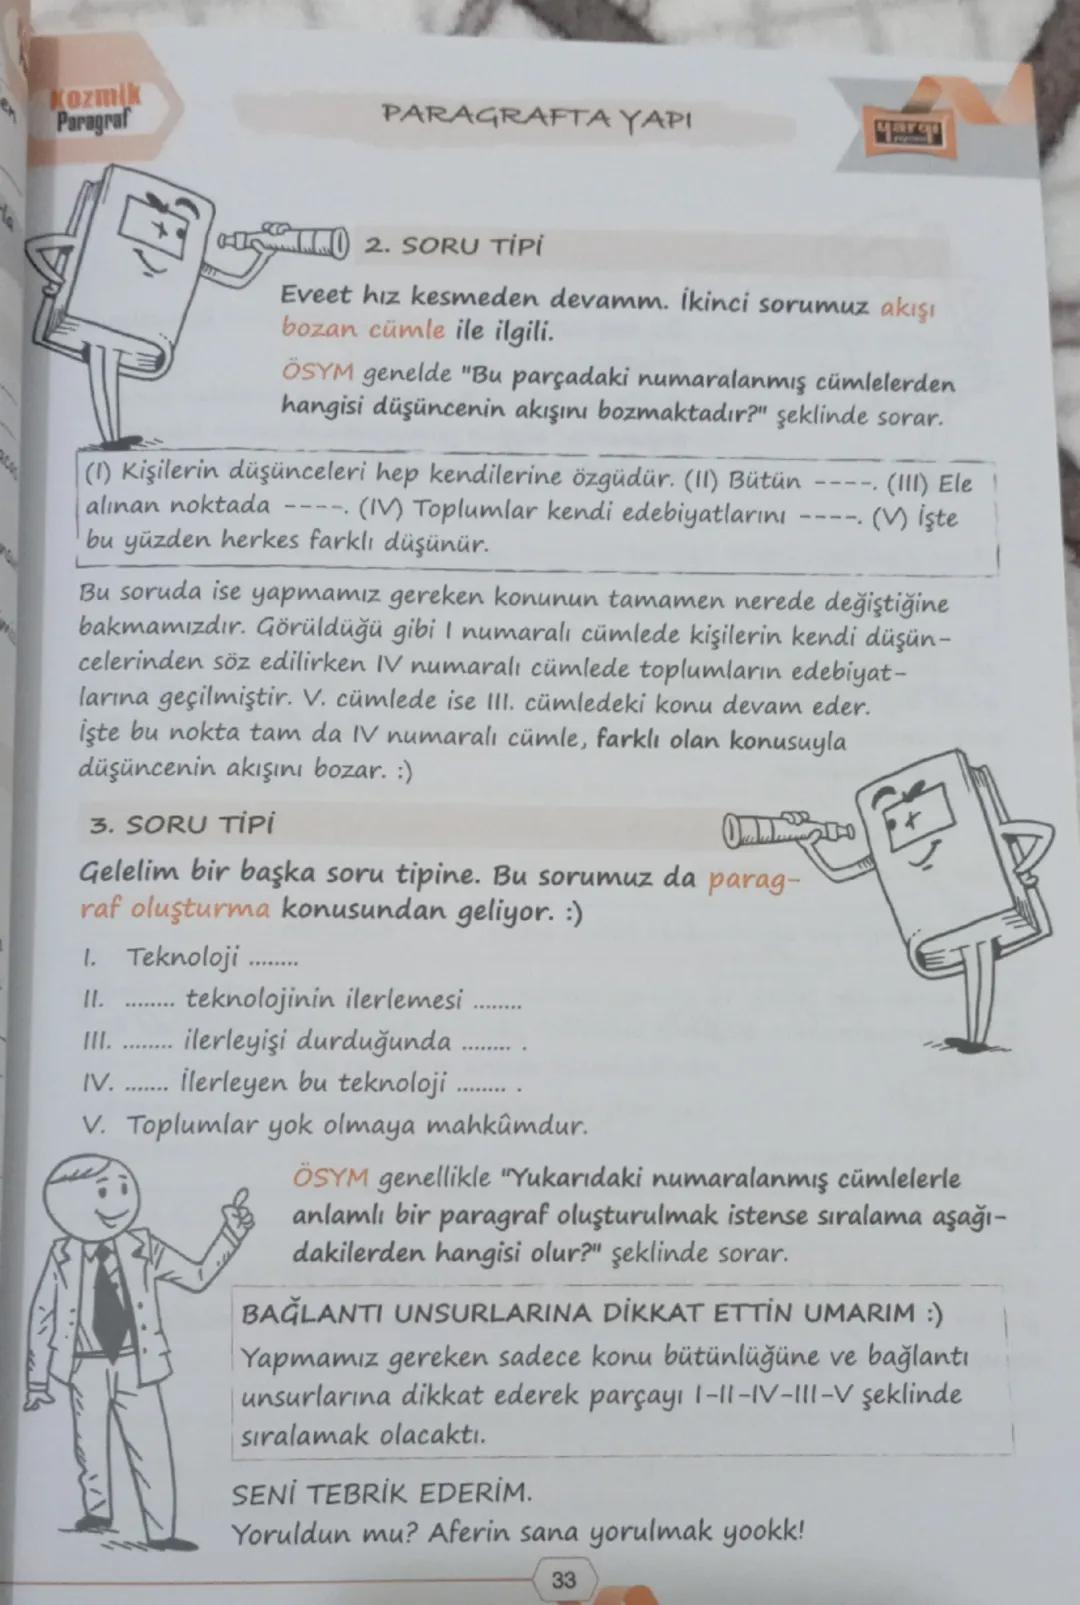 Kozmik
Paragraf
PARAGRAFTA YAPI
yargı
2. SORU TİPİ
Eveet hız kesmeden devamm. İkinci sorumuz akışı
bozan cümle ile ilgili.
ÖSYM genelde "Bu parçadaki numaralanmış cümlelerden
hangisi düşüncenin akışını bozmaktadır?" şeklinde sorar.
(I) Kişilerin düşünceleri hep kendilerine özgüdür. (II) Bütün ----. (III) Ele
alınan noktada ----. (IV) Toplumlar kendi edebiyatlarını ----. (V) İşte
bu yüzden herkes farklı düşünür.
Bu soruda ise yapmamız gereken konunun tamamen nerede değiştiğine
bakmamızdır. Görüldüğü gibi I numaralı cümlede kişilerin kendi düşün-
celerinden söz edilirken IV numaralı cümlede toplumların edebiyat-
larına geçilmiştir. V. cümlede ise III. cümledeki konu devam eder.
İşte bu nokta tam da IV numaralı cümle, farklı olan konusuyla
düşüncenin akışını bozar. :)
3. SORU TİPİ
Gelelim bir başka soru tipine. Bu sorumuz da parag-
raf oluşturma konusundan geliyor. :)
I. Teknoloji ........
II. ........ teknolojinin ilerlemesi ........
III. ........ ilerleyişi durduğunda ........ .
IV. ....... İlerleyen bu teknoloji ........ .
V. Toplumlar yok olmaya mahkûmdur.
ÖSYM genellikle "Yukarıdaki numaralanmış cümlelerle
anlamlı bir paragraf oluşturulmak istense sıralama aşağı-
dakilerden hangisi olur?" şeklinde sorar.
BAĞLANTI UNSURLARINA DİKKAT ETTİN UMARIM :)
Yapmamız gereken sadece konu bütünlüğüne ve bağlantı
unsurlarına dikkat ederek parçayı I-II-IV-III-V şeklinde
sıralamak olacaktı.
SENİ TEBRİK EDERİM.
Yoruldun mu? Aferin sana yorulmak yookk!
33